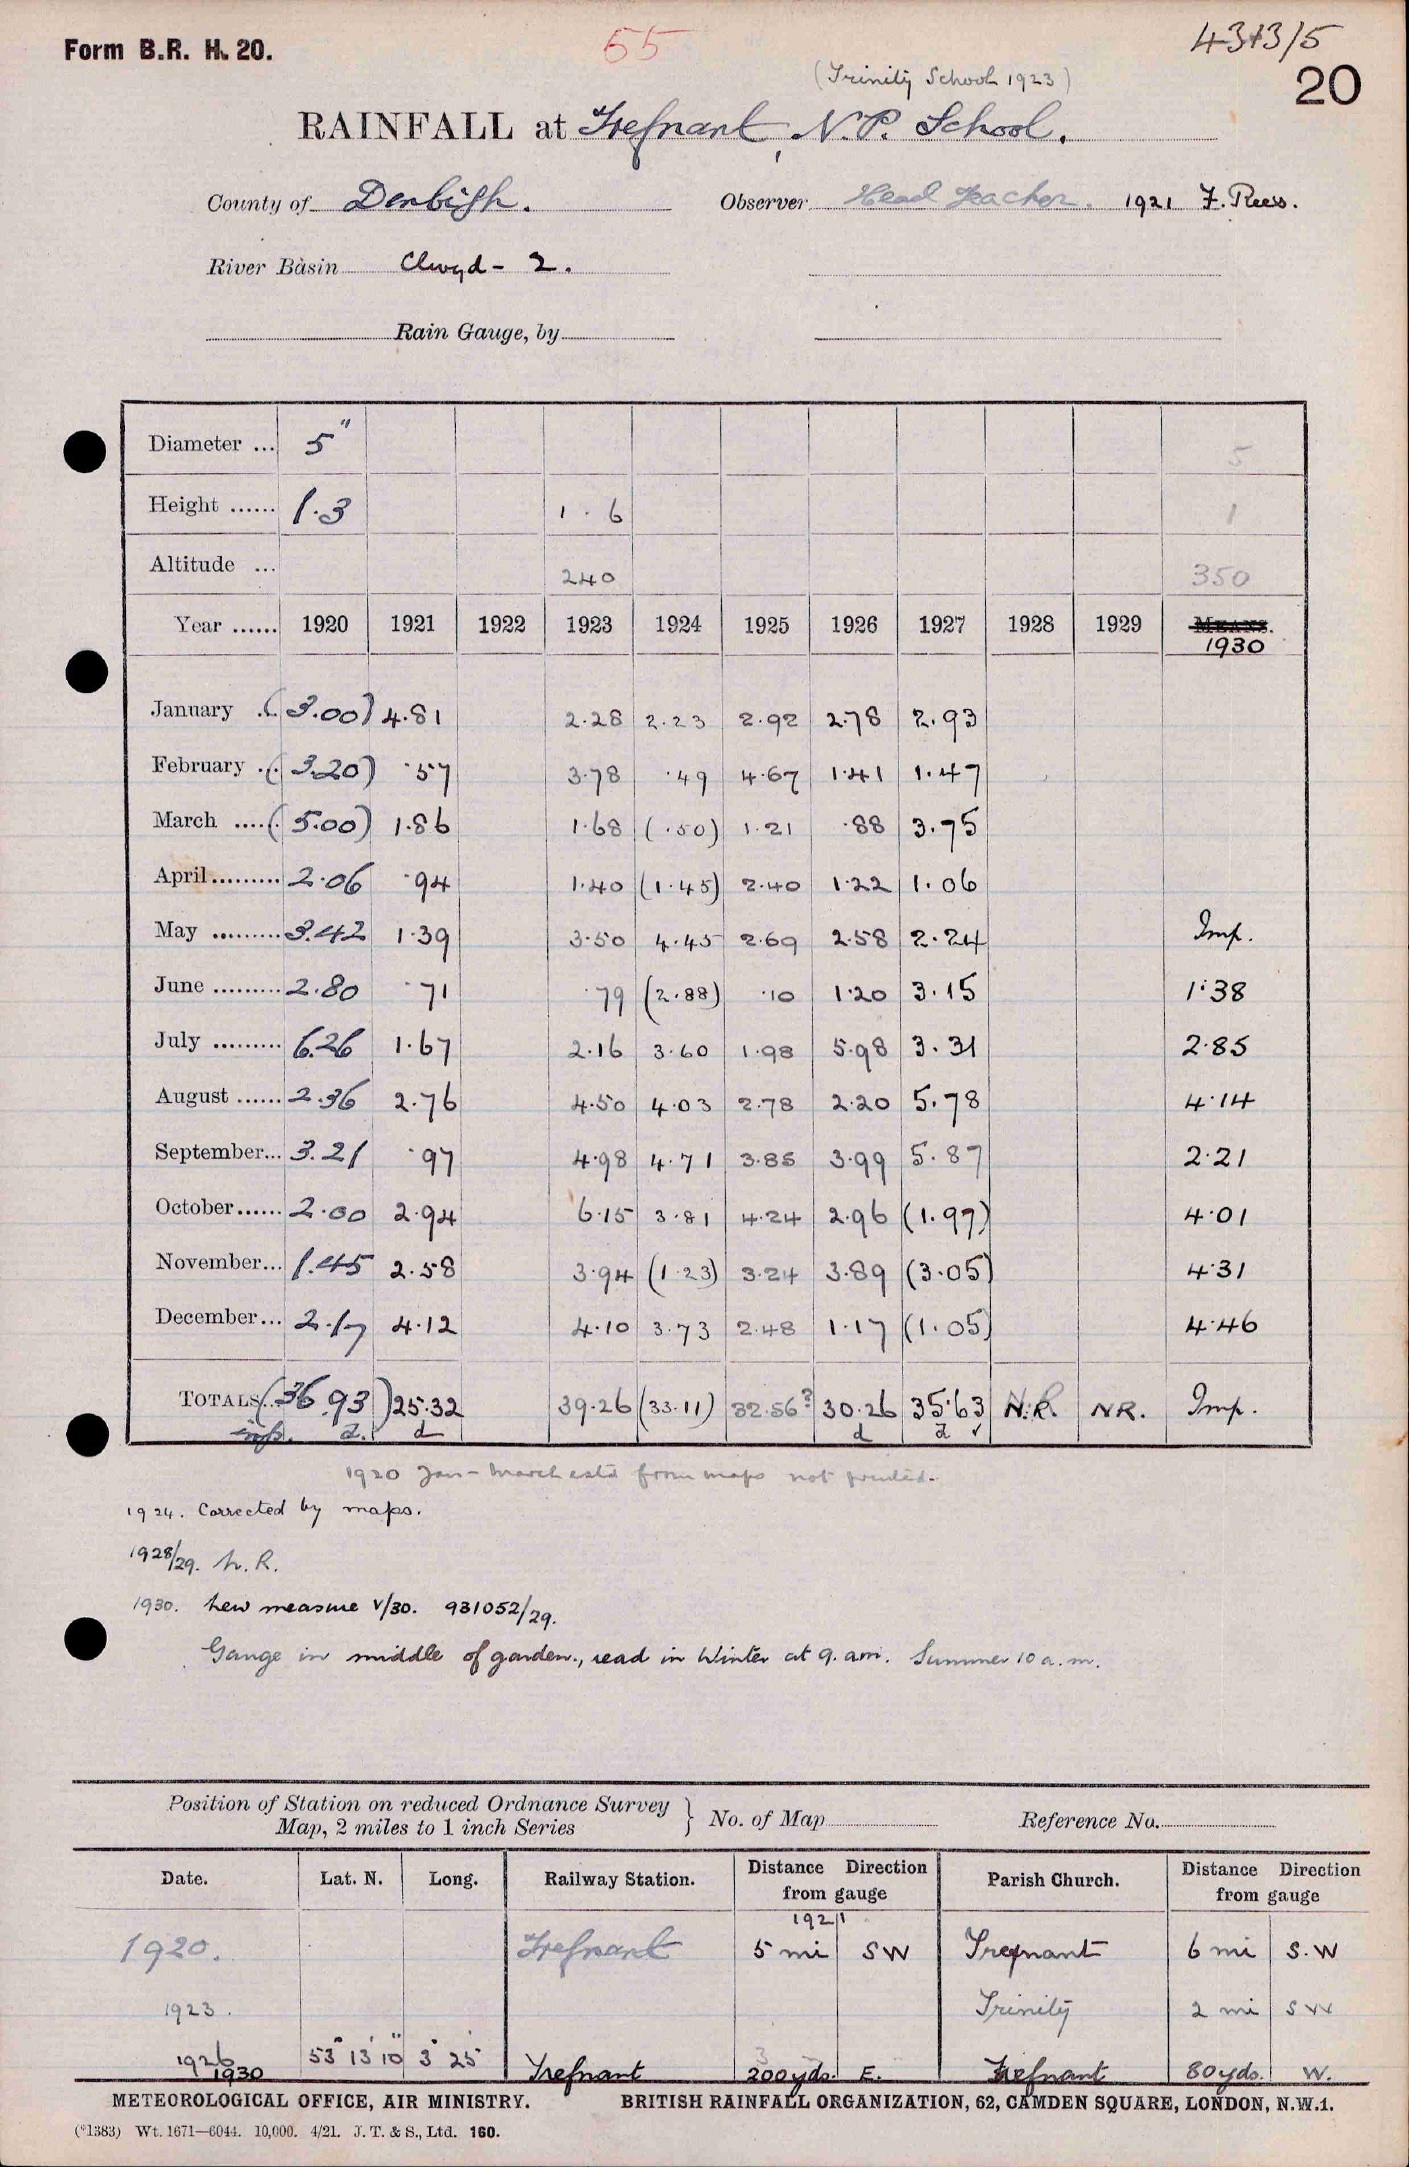 Form B.R. H. 20.
55
43+3/5
20
(Trinity School 1923)
RAINFALL at Trefnant, N.P. School.
County of Denbigh. Observer Head Teacher. 1921 F. Rees.
River Basin Clwyd - 2.
Rain Gauge, by
Diameter ... 5" 5
Height ...... 1.3 1.6 1
Altitude ... 240 350
Year ...... 1920 1921 1922 1923 1924 1925 1926 1927 1928 1929 MEANS.
1930
January ... (3.00) 4.81 2.28 2.23 2.92 2.78 2.93
February ... (3.20) .57 3.78 .49 4.67 1.41 1.47
March .... (5.00) 1.86 1.68 (.50) 1.21 .88 3.75
April ......... 2.06 .94 1.40 (1.45) 2.40 1.22 1.06
May ......... 3.42 1.39 3.50 4.45 2.69 2.58 2.24 Imp.
June ......... 2.80 .71 .79 (2.88) .10 1.20 3.15 1.38
July ......... 6.26 1.67 2.16 3.60 1.98 5.98 3.31 2.85
August ...... 2.36 2.76 4.50 4.03 2.78 2.20 5.78 4.14
September... 3.21 .97 4.98 4.71 3.85 3.99 5.87 2.21
October...... 2.00 2.94 6.15 3.81 4.24 2.96 (1.97) 4.01
November... 1.45 2.58 3.94 (1.23) 3.24 3.89 (3.05) 4.31
December... 2.17 4.12 4.10 3.73 2.48 1.17 (1.05) 4.46
TOTALS... (36.93) 25.32 39.26 (33.11) 32.56? 30.26 35.63 N.R. N.R. Imp.
d. d d d ✓
1920 Jan - March estd from maps not printed.
1924. Corrected by maps.
1928/29. N.R.
1930. New measure V/30. 931052/29.
Gauge in middle of garden., read in Winter at 9. a.m. Summer 10 a.m.
Position of Station on reduced Ordnance Survey
Map, 2 miles to 1 inch Series } No. of Map Reference No.
Date. Lat. N. Long. Railway Station. Distance Direction from gauge Parish Church. Distance Direction from gauge
1921
1920. Trefnant 5 mi SW Trefnant 6 mi S.W
1923. Trinity 2 mi SW
1926
1930 53° 13' 10" 3° 25' Trefnant 200 yds. E. Trefnant 80 yds. W.
METEOROLOGICAL OFFICE, AIR MINISTRY. BRITISH RAINFALL ORGANIZATION, 62, CAMDEN SQUARE, LONDON, N.W.1.
(*1383) Wt. 1671—6044. 10,000. 4/21. J. T. & S., Ltd. 160.